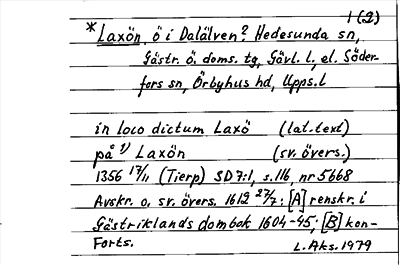 1(2)
*Laxön, ö i Dalälven? Hedesunda sn,
Gästr. ö. doms. tg, Gävl. l, el. Söder-
fors sn, Örbyhus hd, Upps. l
in loco dictum Laxö (lat. text)
på 1) Laxön (sv. övers.)
1356 17/11 (Tierp) SD 7:1, s. 116, nr 5668
Avskr. o. sv. övers. 1612 27/7: [A] renskr. i
Gästriklands dombok 1604-45; [B] kon-
Forts. L. Aks. 1979